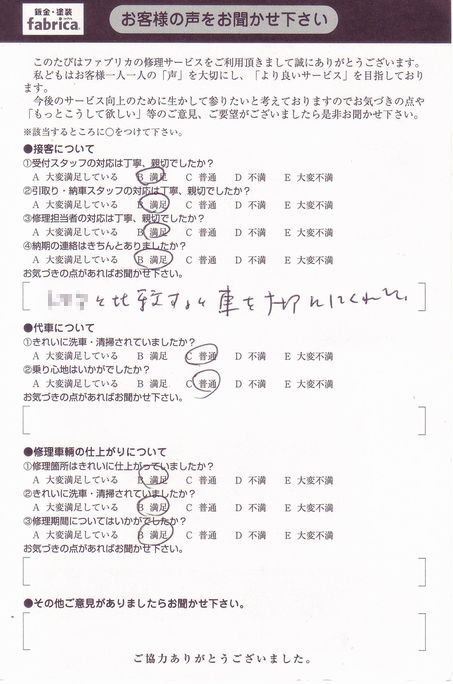 鈑金・塗装
fabrica.
お客様の声をお聞かせ下さい
このたびはファブリカの修理サービスをご利用頂きまして誠にありがとうございます。
私どもはお客様一人一人の「声」を大切にし、「より良いサービス」を目指しており
ます。
今後のサービス向上のために生かして参りたいと考えておりますのでお気づきの点や
「もっとこうして欲しい」等のご意見、ご要望がございましたら是非お聞かせ下さい。
※該当するところに○をつけて下さい。
●接客について
①受付スタッフの対応は丁寧、親切でしたか?
A 大変満足している B 満足 C 普通 D 不満 E 大変不満
②引取り・納車スタッフの対応は丁寧、親切でしたか?
A 大変満足している B 満足 C 普通 D 不満 E 大変不満
③修理担当者の対応は丁寧、親切でしたか?
A 大変満足している B 満足 C 普通 D 不満 E 大変不満
④納期の連絡はきちんとありましたか?
A 大変満足している B 満足 C 普通 D 不満 E 大変不満
お気づきの点があればお聞かせ下さい。
と比較すると車を大切にしてくれた。
●代車について
①きれいに洗車・清掃されていましたか?
A 大変満足している B 満足 C 普通 D 不満 E 大変不満
②乗り心地はいかがでしたか?
A 大変満足している B 満足 C 普通 D 不満 E 大変不満
お気づきの点があればお聞かせ下さい。
●修理車輌の仕上がりについて
①修理箇所はきれいに仕上がっていましたか?
A 大変満足している B 満足 C 普通 D 不満 E 大変不満
②きれいに洗車・清掃されていましたか?
A 大変満足している B 満足 C 普通 D 不満 E 大変不満
③修理期間についてはいかがでしたか?
A 大変満足している B 満足 C 普通 D 不満 E 大変不満
お気づきの点があればお聞かせ下さい。
●その他ご意見がありましたらお聞かせ下さい。
ご協力ありがとうございました。